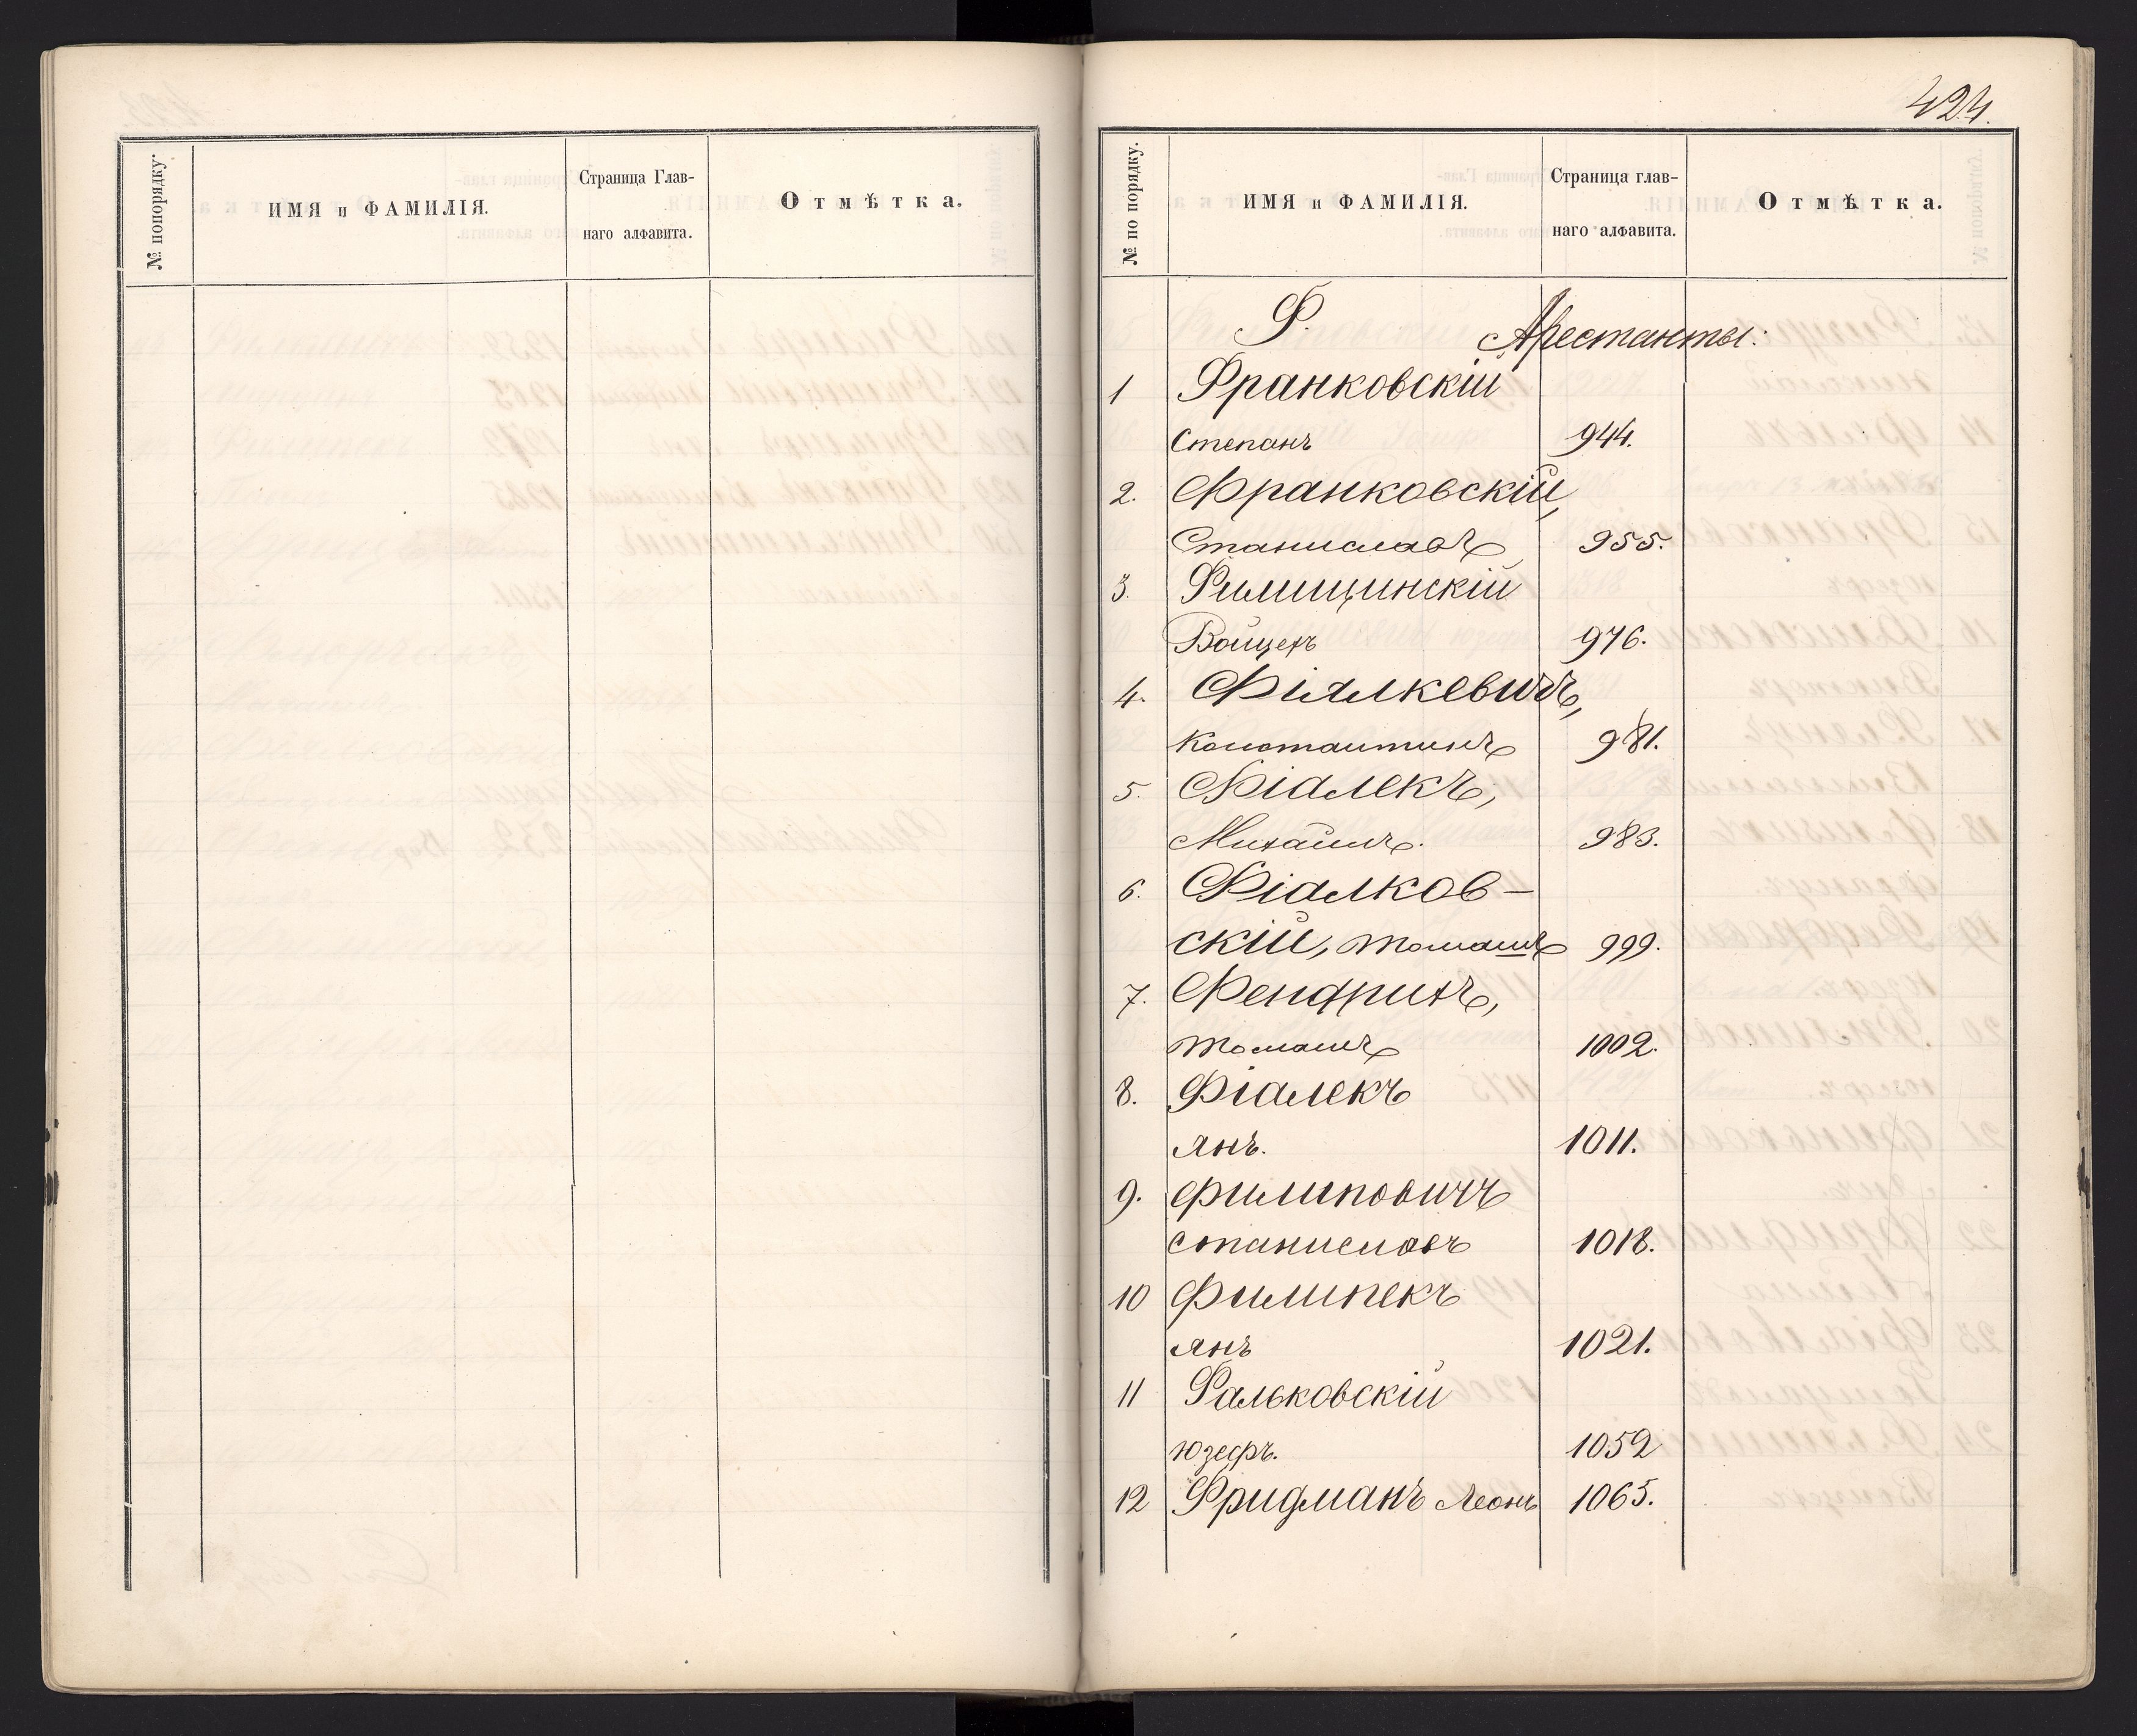 № попорядку.
ИМЯ и ФАМИЛІЯ.
Страница Глав-
наго алфавита.
Отмѣтка.
424.
№ по порядку.
ИМЯ и ФАМИЛІЯ.
Страница глав-
наго алфавита.
Отмѣтка.
Ф. Арестанты:
1 Франковскій
Степанъ 944.
2. Франковскій,
Станиславъ 955.
3. Филищинскій
Войцехъ 976.
4. Фіялкевичъ,
Константинъ 981.
5. Фіалекъ,
Михаилъ. 983.
6. Фіалков-
скій, Томашъ 999.
7. Фендрихъ,
Томашъ 1002.
8. Фіалекъ
Янъ. 1011.
9. Филиповичъ
Станиславъ 1018.
10 Филипекъ
Янъ 1021.
11 Фальковскій
Юзефъ. 1052
12 Фридманъ Леонъ 1065.